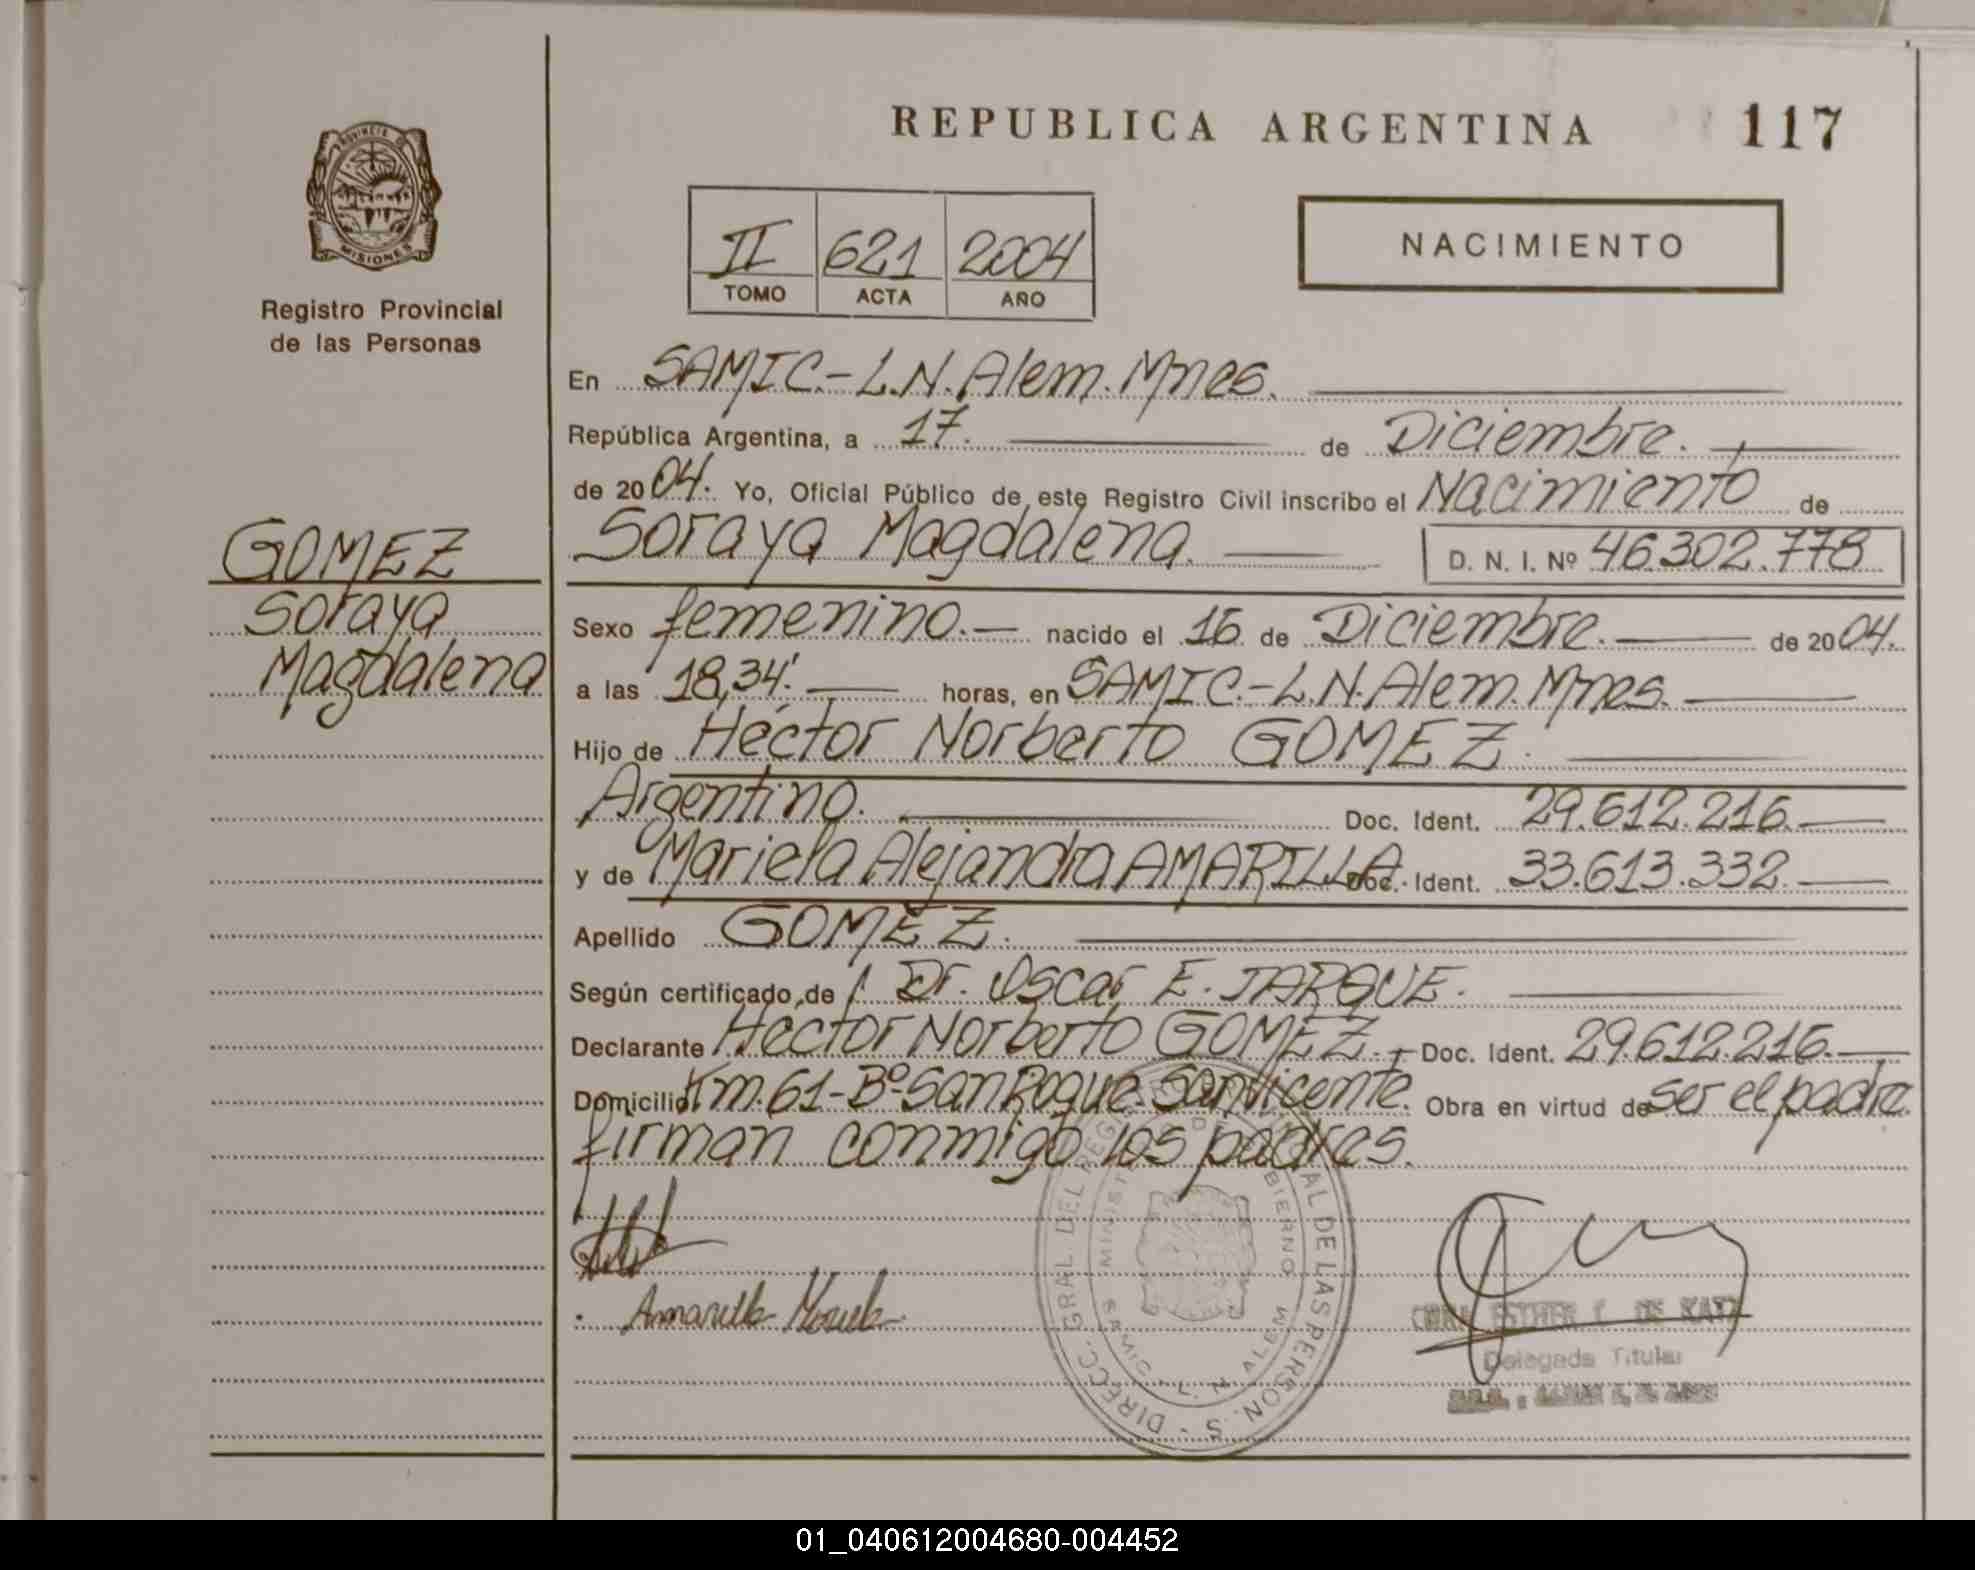 REPUBLICA ARGENTINA 117
PROVINCIA DE MISIONES
Registro Provincial
de las Personas
II 621 2004
TOMO ACTA AÑO
NACIMIENTO
En SAMIC.-L.N.Alem.Mnes.
República Argentina, a 17. de Diciembre.
de 2004. Yo, Oficial Público de este Registro Civil inscribo el Nacimiento de
Soraya Magdalena. D. N. I. Nº 46.302.778
GOMEZ
Soraya
Magdalena
Sexo femenino.- nacido el 16 de Diciembre. de 2004.
a las 18,34'. horas, en SAMIC.-L.N.Alem.Mnes.
Hijo de Héctor Norberto GOMEZ.
Argentino. Doc. Ident. 29.612.216.
y de Mariela Alejandra AMARILLA Doc. Ident. 33.613.332.
Apellido GOMEZ.
Según certificado de Dr. Oscar E. JARQUE.
Declarante Héctor Norberto GOMEZ. Doc. Ident. 29.612.216.
Domicilio Km.61-Bº.San Roque.San Vicente. Obra en virtud de ser el padre.
firman conmigo los padres.
Amarilla Mariela
DIRECC. GRAL. DEL REG AL DE LAS PERSONAS
MINIST DE GOBIERNO
SAMIC - L. N. ALEM
ESTHER DE KATZ
Delegada Titular
01_040612004680-004452